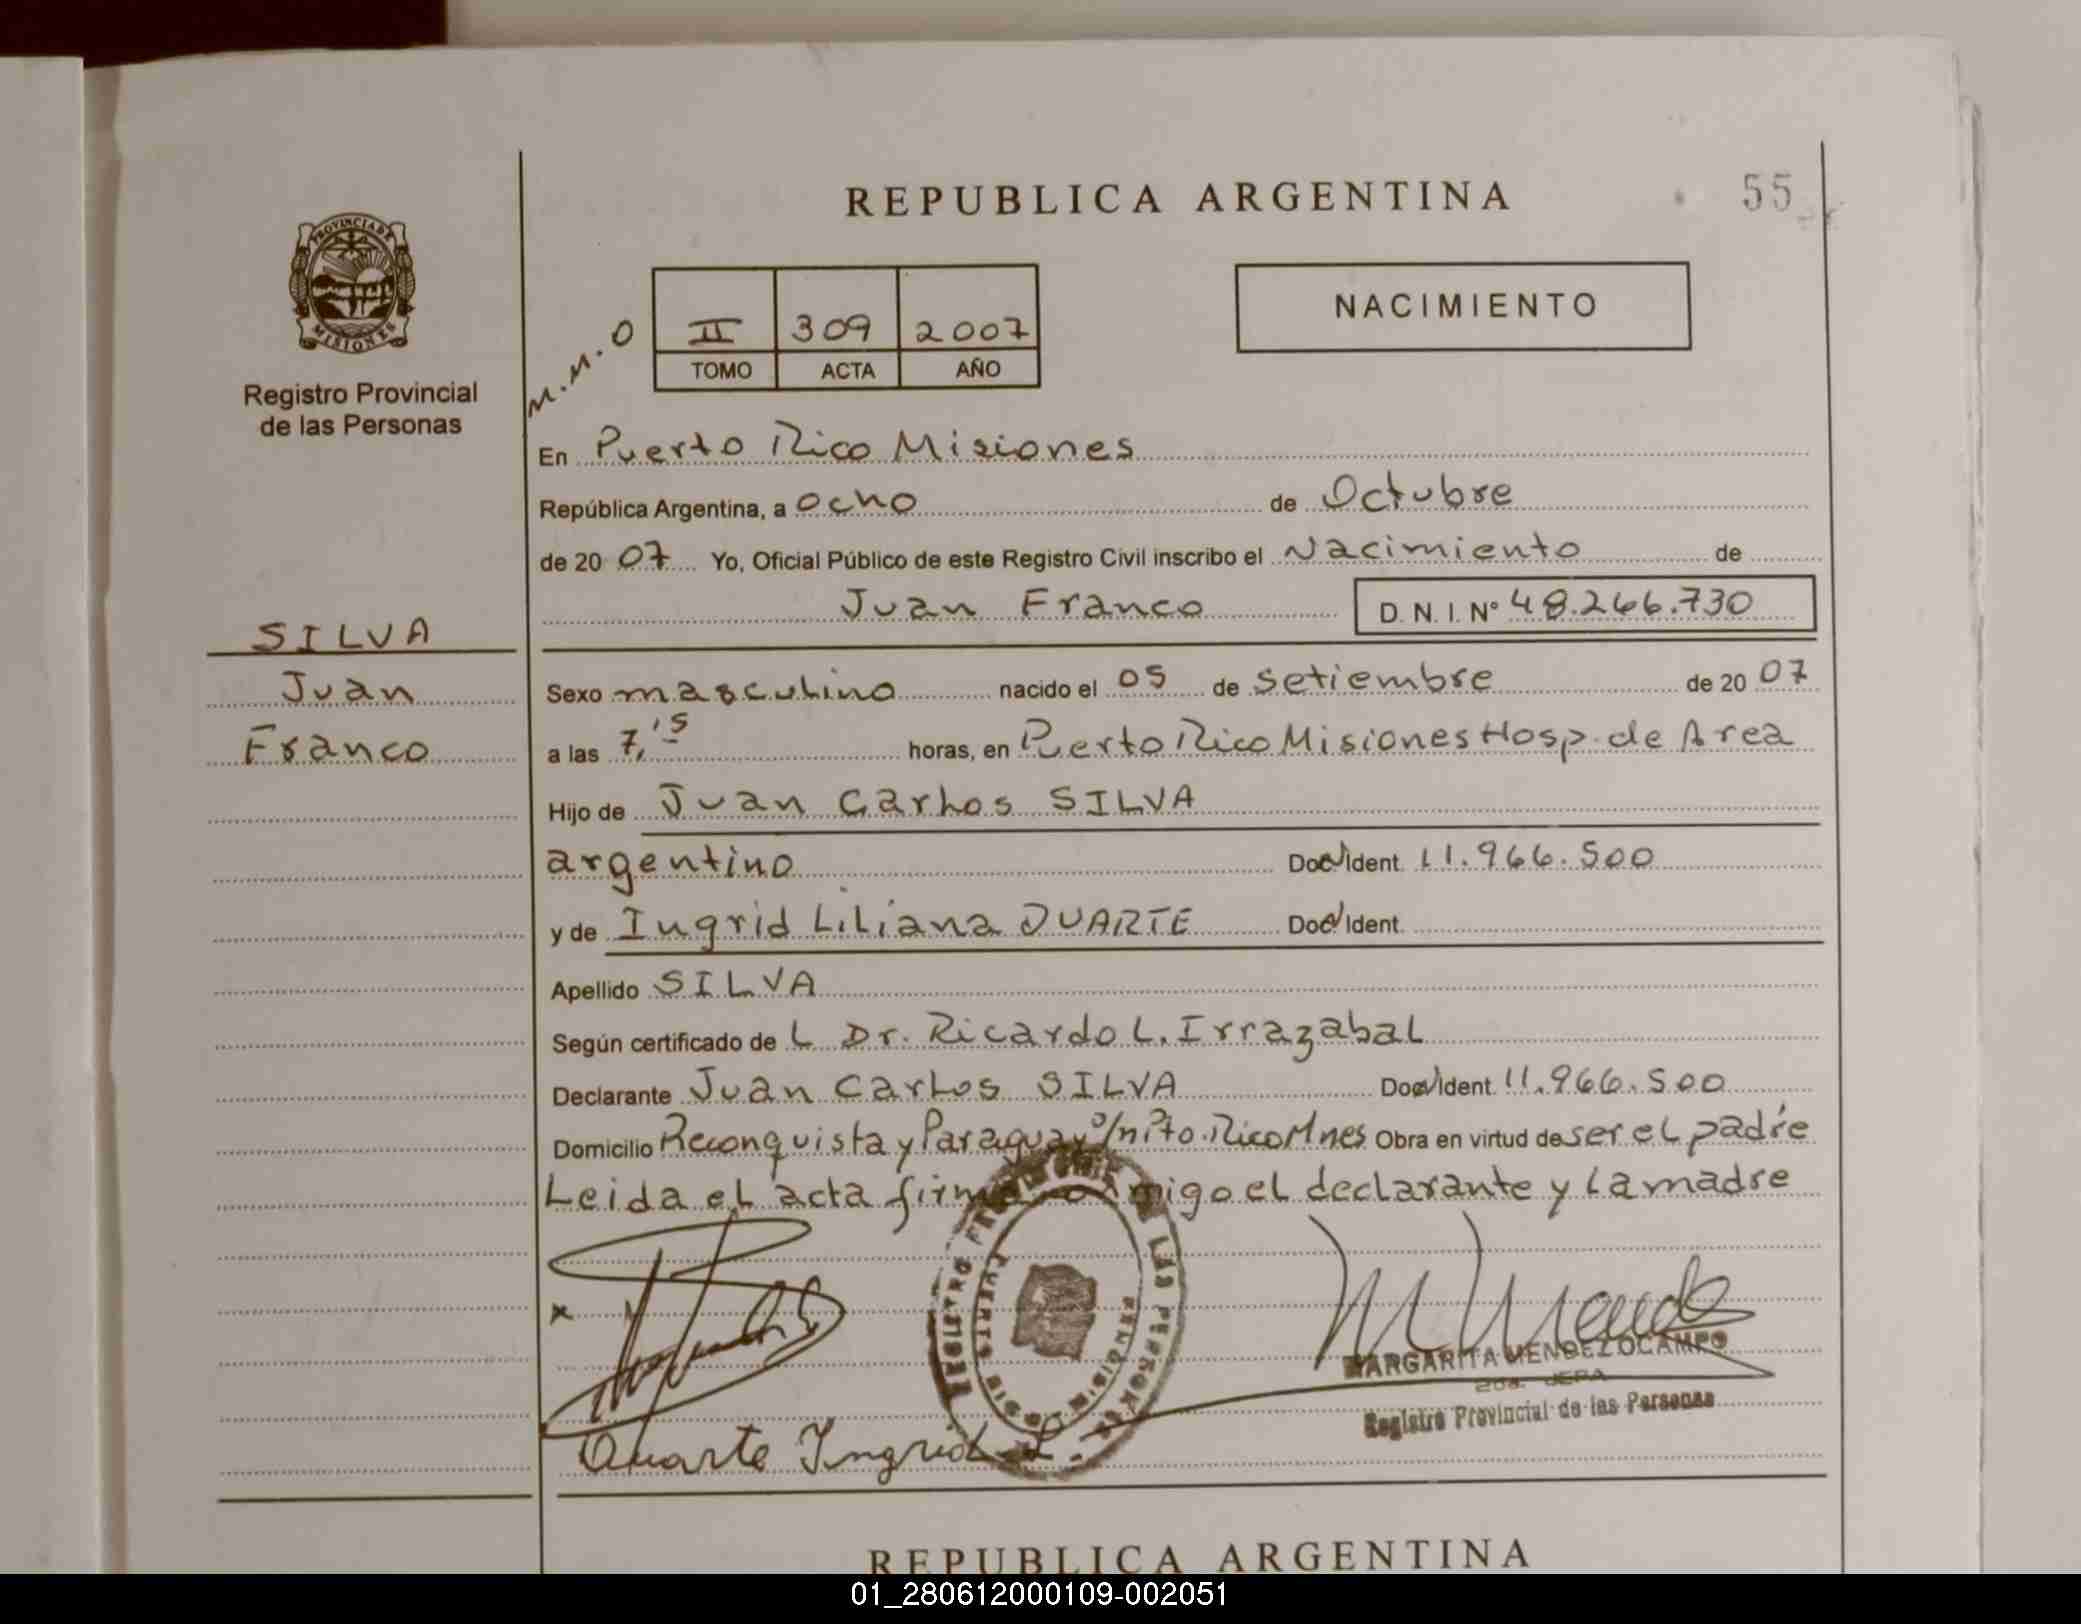 REPUBLICA ARGENTINA
55
PROVINCIA DE
MISIONES
Registro Provincial
de las Personas
M.M.O
II 309 2007
TOMO ACTA AÑO
NACIMIENTO
En Puerto Rico Misiones
República Argentina, a ocho de Octubre
de 2007 Yo, Oficial Público de este Registro Civil inscribo el Nacimiento de
Juan Franco D. N. I. Nº 48.266.730
SILVA
Juan
Franco
Sexo masculino nacido el 05 de setiembre de 2007
a las 7,15 horas, en Puerto Rico Misiones Hosp. de Area
Hijo de Juan Carlos SILVA
argentino Doc. Ident. 11.966.500
y de Ingrid Liliana DUARTE Doc. Ident.
Apellido SILVA
Según certificado de L Dr. Ricardo L. Irrazabal
Declarante Juan Carlos SILVA Doc. Ident. 11.966.500
Domicilio Reconquista y Paraguay s/nº Pto. Rico Mnes Obra en virtud de ser el padre
Leida el acta firma conmigo el declarante y la madre
x
REGISTRO PROVINCIAL DE LAS PERSONAS
PUERTO RICO MISIONES
MARGARITA MENDEZ OCAMPO
2da. JEFA
Registro Provincial de las Personas
Duarte Ingrid L
REPUBLICA ARGENTINA
01_280612000109-002051